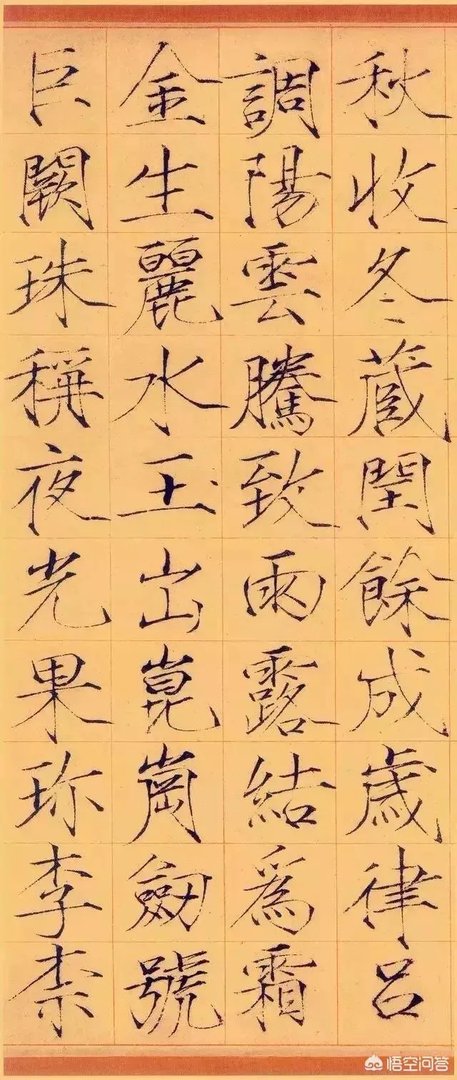 秋收冬藏閏餘成歲律呂
調陽雲騰致雨露結爲霜
金生麗水玉出崑崗劒號
巨闕珠稱夜光果珎李柰
悟空问答